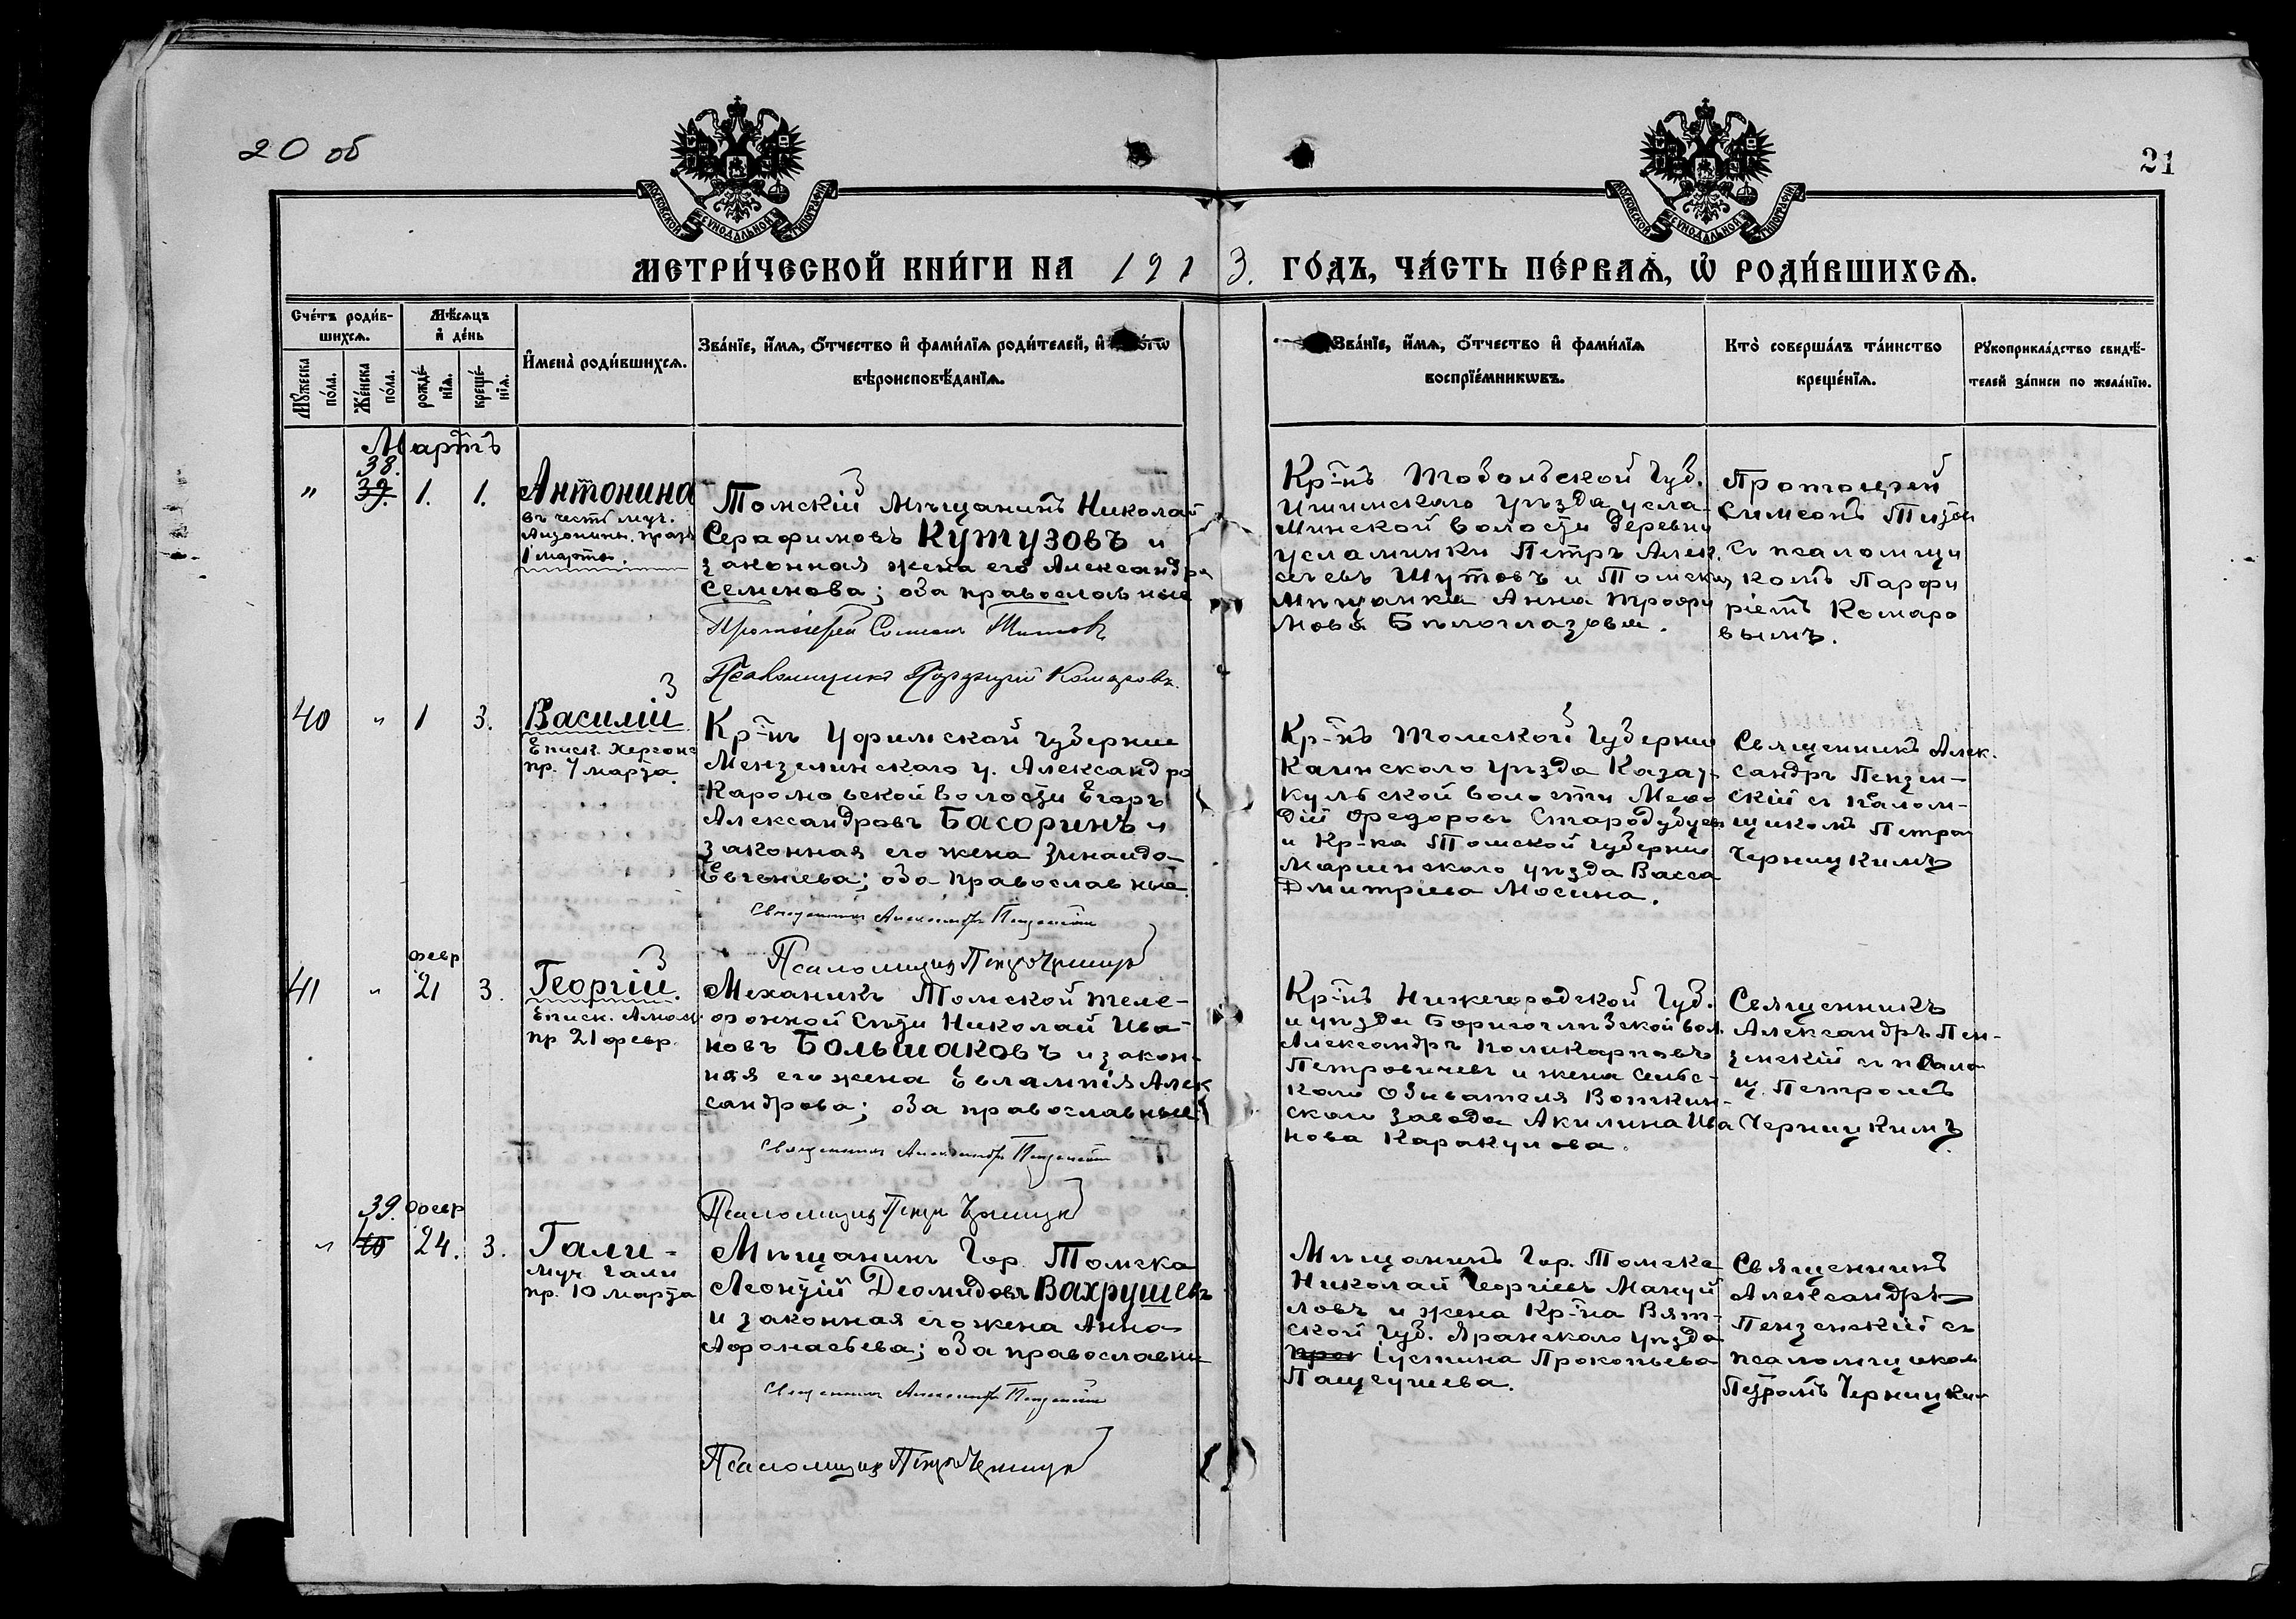 20 об
21
МОСКОВСКОЙ СѴНОДАЛЬНОЙ ТИПОГРАФІИ
МОСКОВСКОЙ СѴНОДАЛЬНОЙ ТИПОГРАФІИ
МЕТРИ́ЧЕСКОЙ КНИ́ГИ НА 1913. ГО́ДЪ, ЧА́СТЬ ПЕ́РВАЯ, Ѡ҆ РОДИ́ВШИХСЯ.
Сче́тъ роди́в-
шихся.
Мѣ́сяцъ
и҆ де́нь
Мꙋ́жеска
по́ла.
Же́нска
по́ла.
рожде́-
нїѧ.
креще́-
нїѧ.
И҆мена̀ роди́вшихсѧ.
Зва́нїе, и҆́мѧ, ѻ҆́тчество и҆ фами́лїѧ роди́телей, и҆
вѣроисповѣ́данїѧ.
Зва́нїе, и҆́мѧ, ѻ҆́тчество и҆ фами́лїѧ
воспрїе́мникѡвъ.
Кто̀ соверша́лъ та́инство
креще́нїѧ.
Рꙋкоприкла́дство свидѣ́-
телей за́писи по жела́нїю.
Мартъ
38.
" 39. 1. 1. Антонина
въ честь муч.
Антонины. празд
1 марта.
Томскій Мѣщанинъ Николай
Серафимовъ Кутузовъ и
законная жена его Александра
Семенова; оба православные
Протоіерей Симеонъ Титовъ
Псаломщикъ Парфирій Комаровъ.
Кр-нъ Тобольской Губ.
Ишимскаго уѣзда усла-
минской волости деревни
усламинки Петръ Алек-
сѣевъ Шутовъ и Томская
Мѣщанка Анна Трофи
мова Бѣлоглазова.
Протоіерей
Симеонъ Титов
съ псаломщи
комъ Парфи
ріемъ Комаро
вымъ.
40 " 1 3. Василій
Еписк. Херсонс
пр. 7 марта.
Кр-нъ Уфимской губерніи
Мензелинскаго у. Александро
Кароло вской волости Егоръ
Александровъ Басоринъ и
законная его жена Зинаида
Евгеніева; оба православные
Священникъ Александръ Пензенскій
Псаломщикъ Петръ Черницкій
Кр-нъ Томской Губерніи
Каинскаго уѣзда Казат-
кульской волости Мефо
дій Федоровъ Стародубцевъ
и Кр-ка Томской губерніи
Маріинскаго уѣзда Васса
Дмитріева Мосина.
Священникъ Алек-
сандръ Пензен-
скій съ псалом-
щикомъ Петром
Черницкимъ
февр
41 " 21 3. Георгій.
Еписк. Амаст.
пр 21 февр.
Механикъ Томской теле-
фонной сѣти Николай Ива-
новъ Большаковъ и закон-
ная его жена Евлампія Алек
сандрова; оба православные
Священникъ Александръ Пензенскій
Псаломщикъ Петръ Черницкій
Кр-нъ Нижегородской Губ.
и уѣзда Боригоглѣбской вол.
Александръ Поликарповъ
Петровичевъ и жена сель-
каго обывателя Воткин-
скаго завода Акилина Ива
нова Каракулова.
Священникъ
Александръ Пен-
зенскій съ псало
щ. Петромъ
Черницкимъ
39. февр
" 40 24. 3. Гали-
Муч. Гали
пр. 10 марта
Мѣщанинъ Гор. Томска
Леонтій Деомидовъ Вахрушевъ
и законная его жена Анна
Афонасьева; оба православны
Священникъ Александръ Пензенскій
Псаломщикъ Петръ Черницкій
Мѣщанинъ Гор. Томска
Николай Георгіевъ Мануй
ловъ и жена Кр-на Вят-
ской губ. Яранскаго уѣзда
Іустина Прокопьева
Пащеушева.
Священникъ
Александръ
Пензенскій съ
псаломщиком
Петромъ Черницким